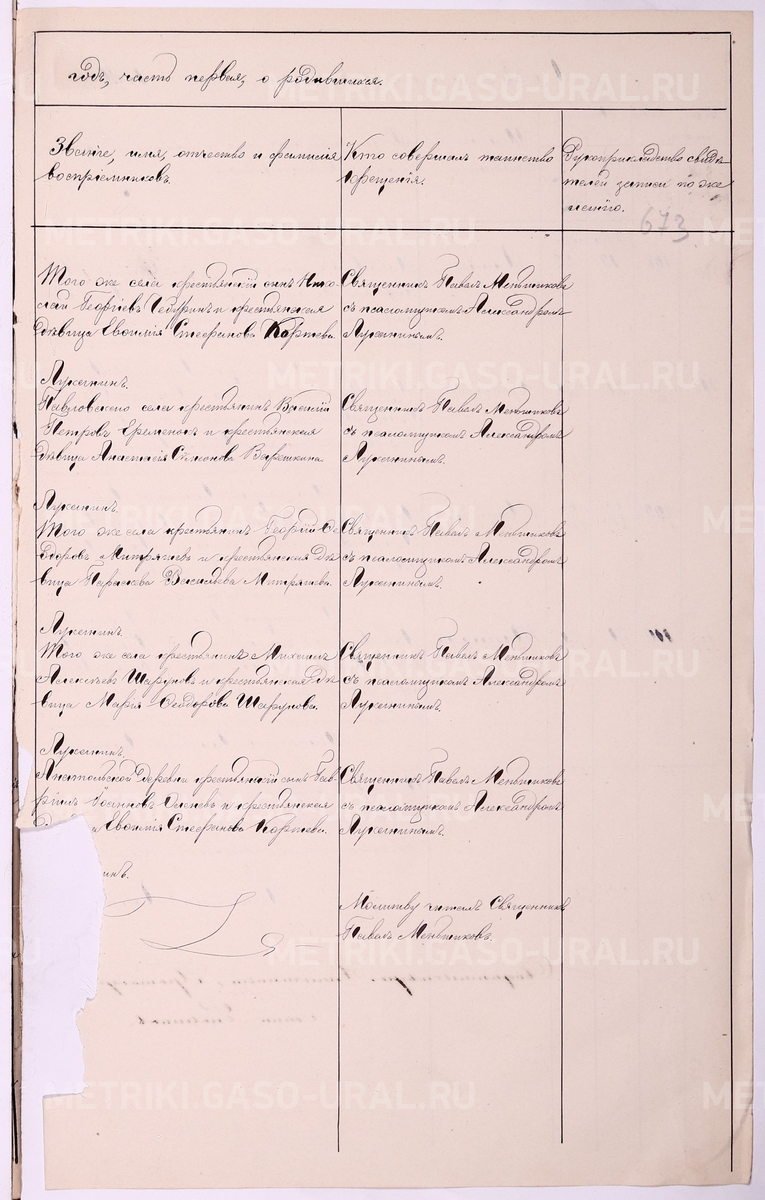 годъ, часть первая, о родившихся.
Званіе, имя, отчество и фамилія
воспріемниковъ.
Кто совершалъ таинство
крещенія.
Рукоприкладство свидѣ
телей записи по же
ланію.
673
Того же села крестьянскій сынъ Нико
лай Георгіевъ и крестьянская
дѣвица Евѳимія Стефанова Каргаева.
Священникъ Павелъ Меньшиковъ
съ псаломщикомъ Александромъ
Лукинымъ.
Павловскаго села крестьянинъ Василій
Петровъ Еременокъ и крестьянская
дѣвица Анастасія Симонова Варешкина
Священникъ Павелъ Меньшиковъ
съ псаломщикомъ Александромъ
Лукинымъ.
Того же села крестьянинъ Георгій Ѳе
доровъ Митряшевъ и крестьянская дѣ
вица Параскева Васильева Митряшева.
Священникъ Павелъ Меньшиковъ
съ псаломщикомъ Александромъ
Лукинымъ.
Того же села крестьянинъ Михаилъ
Алексѣевъ Шаруновъ и крестьянская дѣ
вица Марія Ѳеодорова Шарунова.
Священникъ Павелъ Меньшиковъ
съ псаломщикомъ Александромъ
Лукинымъ.
Анатольской деревни крестьянскій сынъ Гав
ріилъ и крестьянская
Евѳимія Стефанова Каргаева.
Священникъ Павелъ Меньшиковъ
съ псаломщикомъ Александромъ
Лукинымъ.
Молитву читалъ Священникъ
Павелъ Меньшиковъ.
METRIKI.GASO-URAL.RU